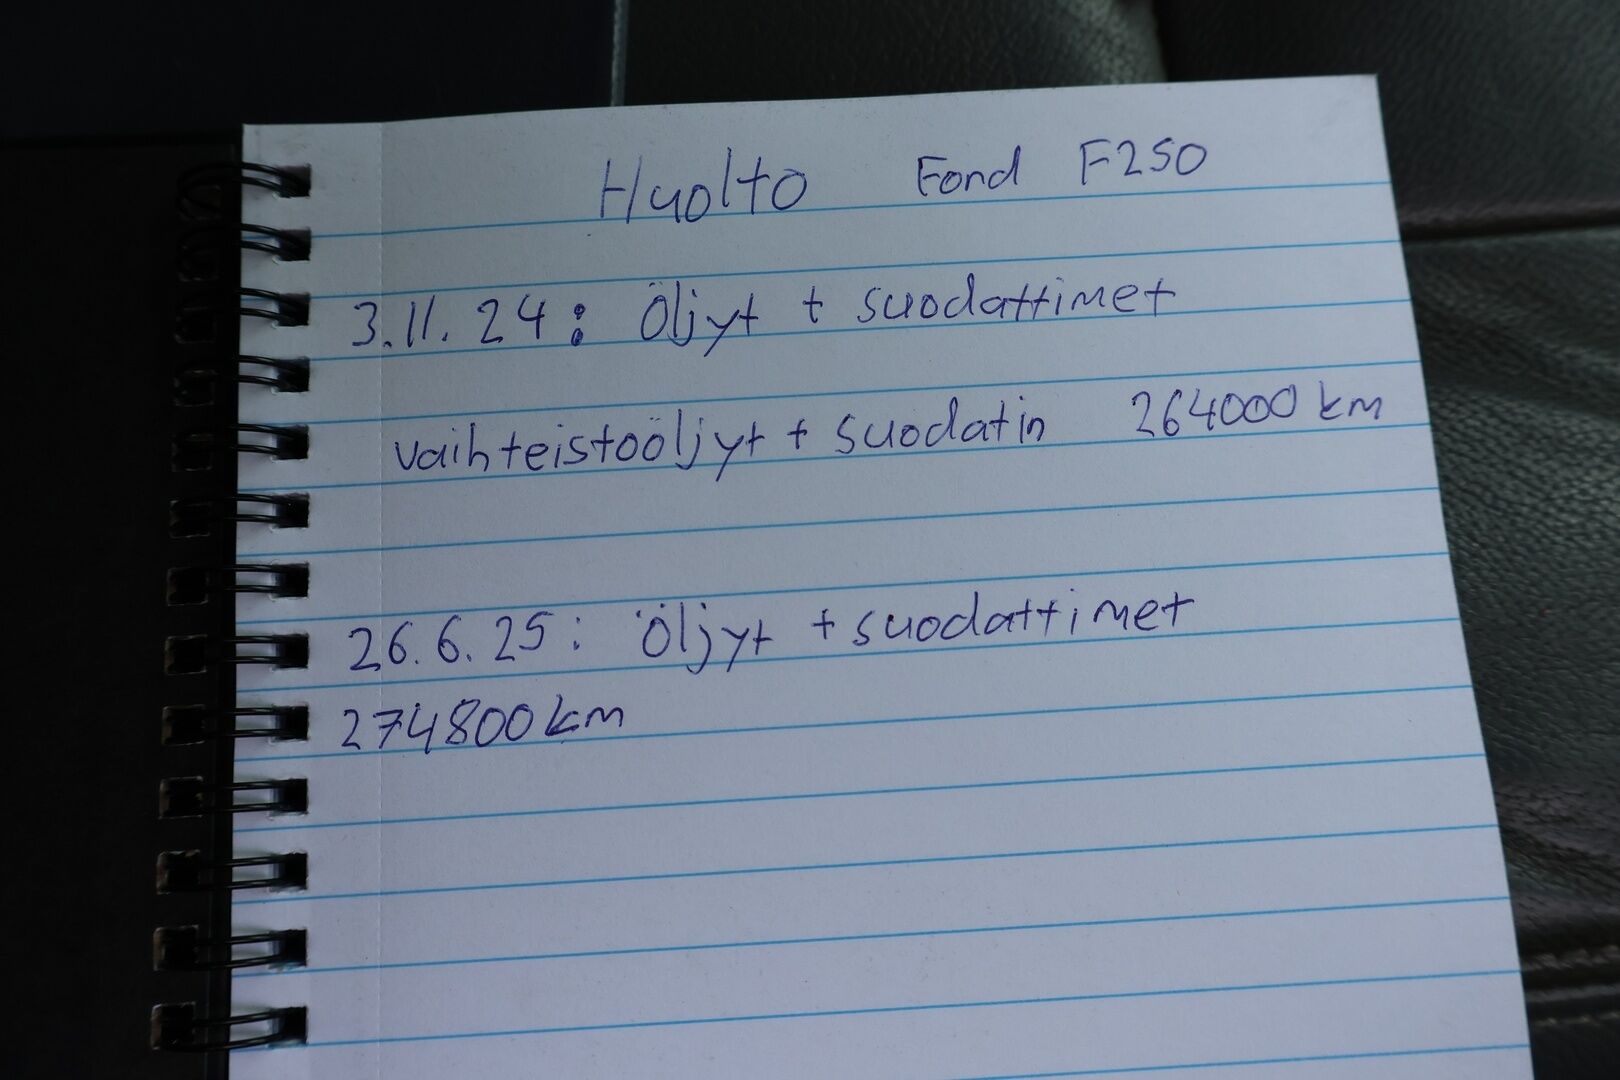 Huolto Fond F250
3.11.24: Öljyt + suodattimet
vaihteistoöljyt + suodatin 264000 km
26.6.25: Öljyt + suodattimet
274800 km